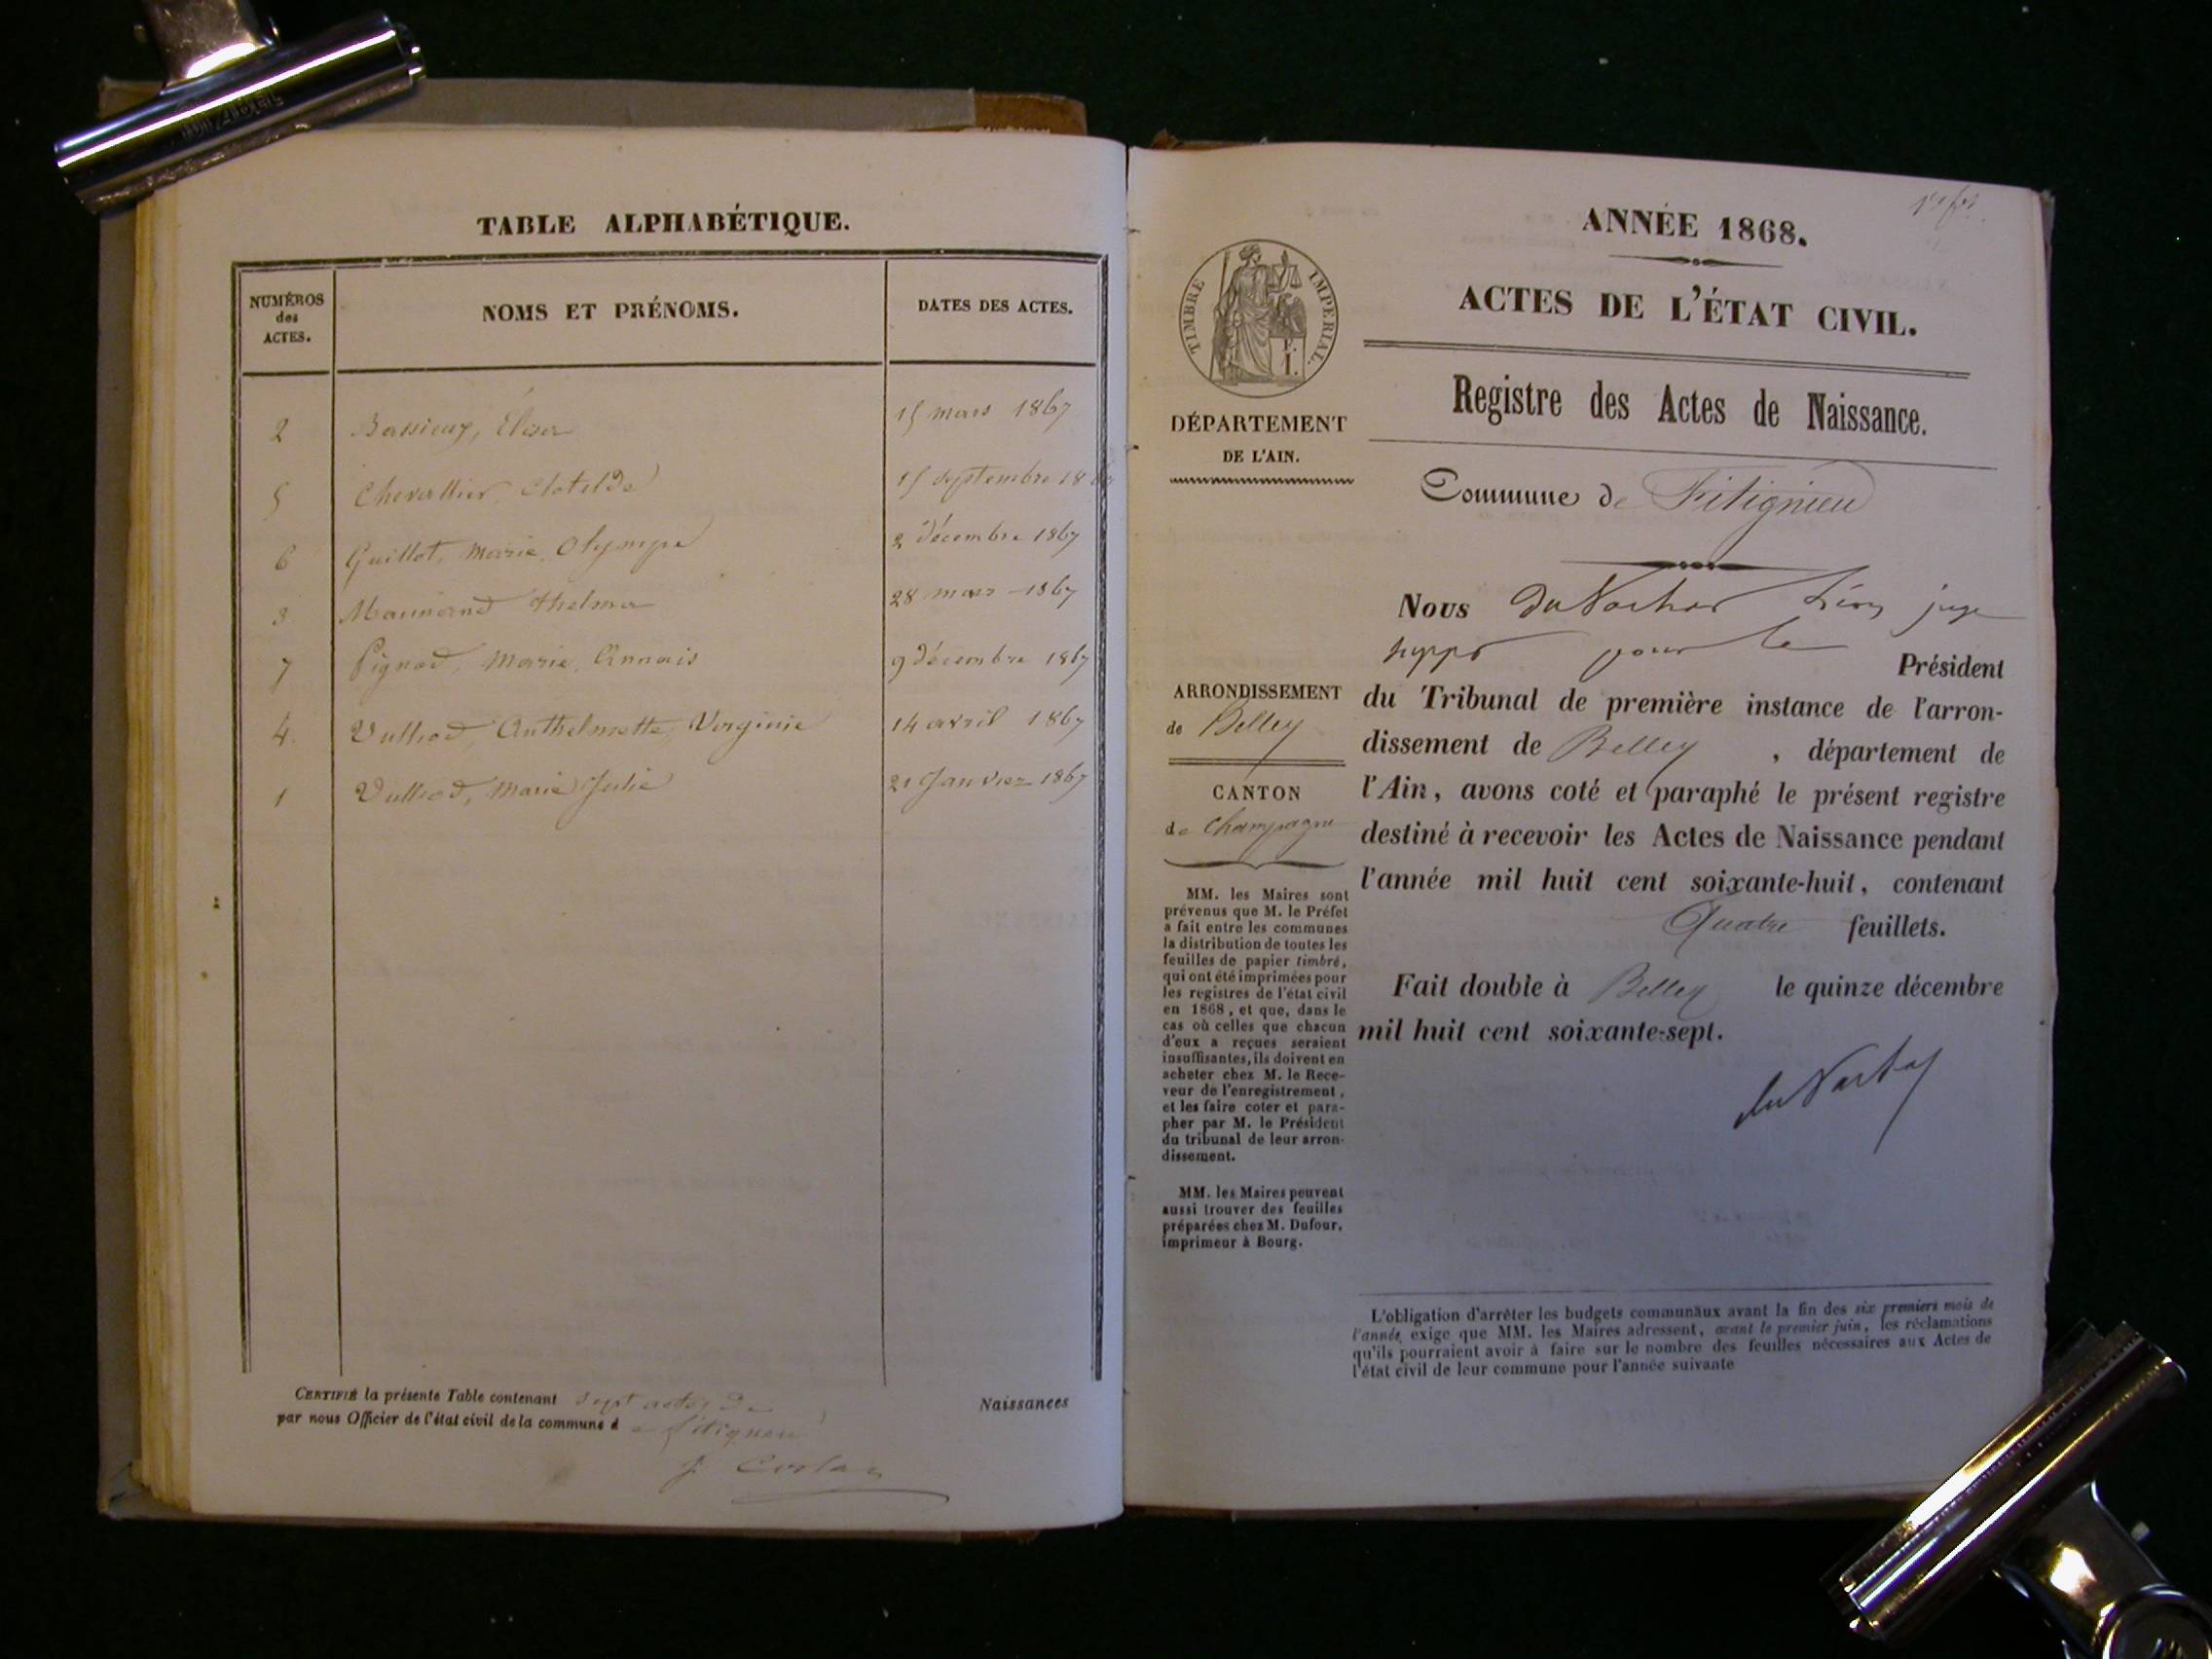 TABLE ALPHABÉTIQUE.
NUMÉROS
des
ACTES.
NOMS ET PRÉNOMS.
DATES DES ACTES.
2 Bassieux, Élisa 15 mars 1867
5 Chevallier, Clotilde 15 septembre 1867
6 Guillot, Marie, Olympe 2 décembre 1867
3 Thelma 28 mars 1867
7 Pignod, Marie, Annaïs 9 décembre 1867
4. Vulliod, Anthelmette, Virginie 14 avril 1867
1 Vulliod, Marie Julie 21 Janvier 1867
CERTIFIÉ la présente Table contenant sept actes de Naissances
par nous Officier de l'état civil de la commune de fitignieu
ANNÉE 1868.
ACTES DE L'ÉTAT CIVIL.
TIMBRE IMPERIAL.
Registre des Actes de Naissance.
DÉPARTEMENT
DE L'AIN.
Commune de Fitignieu
Nous juge
supp pour le Président
ARRONDISSEMENT
de Belley
CANTON
de Champagne
du Tribunal de première instance de l'arron-
dissement de Belley , département de
l'Ain, avons coté et paraphé le présent registre
destiné à recevoir les Actes de Naissance pendant
l'année mil huit cent soixante-huit, contenant
Quatre feuillets.
Fait double à Belley le quinze décembre
mil huit cent soixante-sept.
MM. les Maires sont
prévenus que M. le Préfet
a fait entre les communes
la distribution de toutes les
feuilles de papier timbré,
qui ont été imprimées pour
les registres de l'état civil
en 1868, et que, dans le
cas où celles que chacun
d'eux a reçues seraient
insuffisantes, ils doivent en
acheter chez M. le Rece-
veur de l'enregistrement,
et les faire coter et para-
pher par M. le Président
du tribunal de leur arron-
dissement.
MM. les Maires peuvent
aussi trouver des feuilles
préparées chez M. Dufour,
imprimeur à Bourg.
L'obligation d'arrêter les budgets communaux avant la fin des six premiers mois de
l'année, exige que MM. les Maires adressent, avant le premier juin, les réclamations
qu'ils pourraient avoir à faire sur le nombre des feuilles nécessaires aux Actes de
l'état civil de leur commune pour l'année suivante